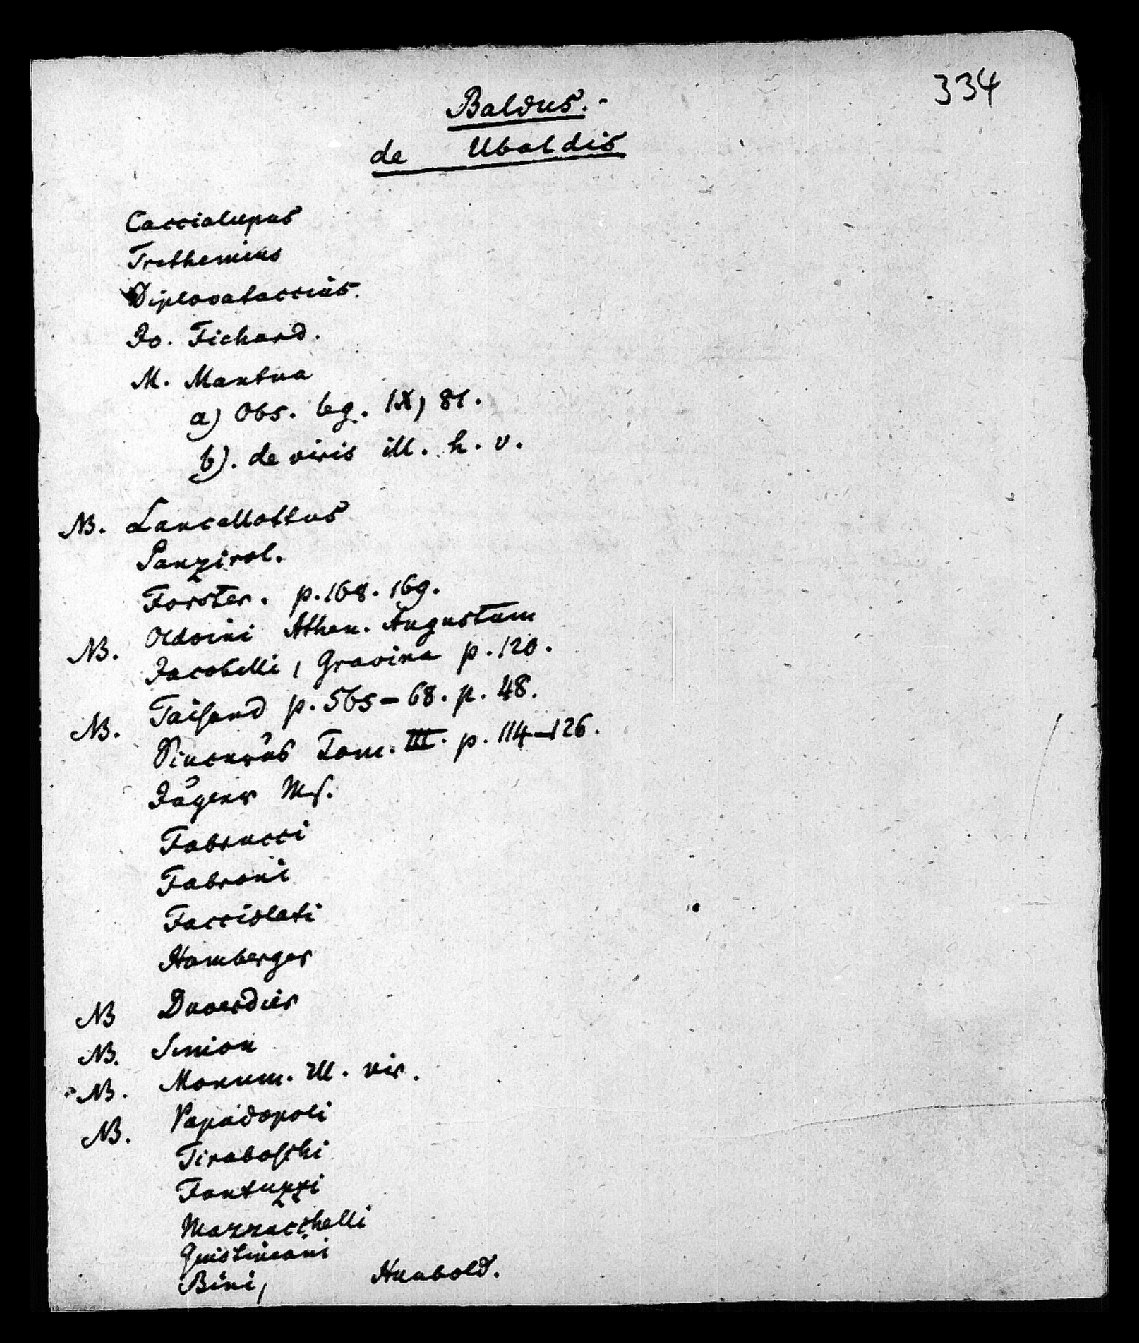 334
Baldus.-
de Ubaldis
Caccialupus
Trithemius
Diplovataccius.
Jo. Fichard.
M. Mantua
a) Obs. leg. IX, 81.
b). de viris ill. h. v.
NB. Lancellottus
Panzirol.
Forster. p. 168. 169.
NB. Oldoini Athen. Augustum
Jacobilli, Gravina p. 120.
NB. Taisand p. 565-68. p. 48.
Tom. III. p. 114-126.
Jägers Ms.
Fabrucci
Fabroni
Facciolati
Hamberger
NB Duverdier
NB. Simon
NB. Monum. ill. vir.
NB. Papadopoli
Tiraboschi
Fantuzzi
Mazzucchelli
Giustiniani
Bini, Hunbold.